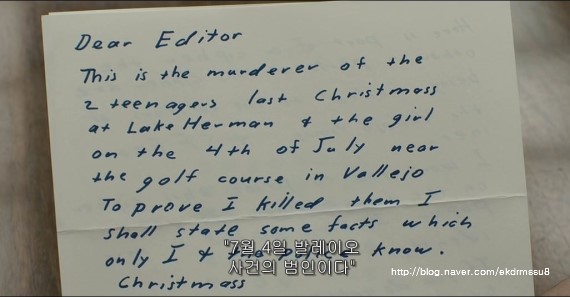 Dear Editor
This is the murderer of the
2 teenagers last Christmass
at Lake Herman & the girl
on the 4th of July near
the golf course in Vallejo
To prove I killed them I
shall state some facts which
only I & the police know.
Christmass
"7월 4일 발레이오
사건의 범인이다"
http://blog.naver.com/ekdrmssu8